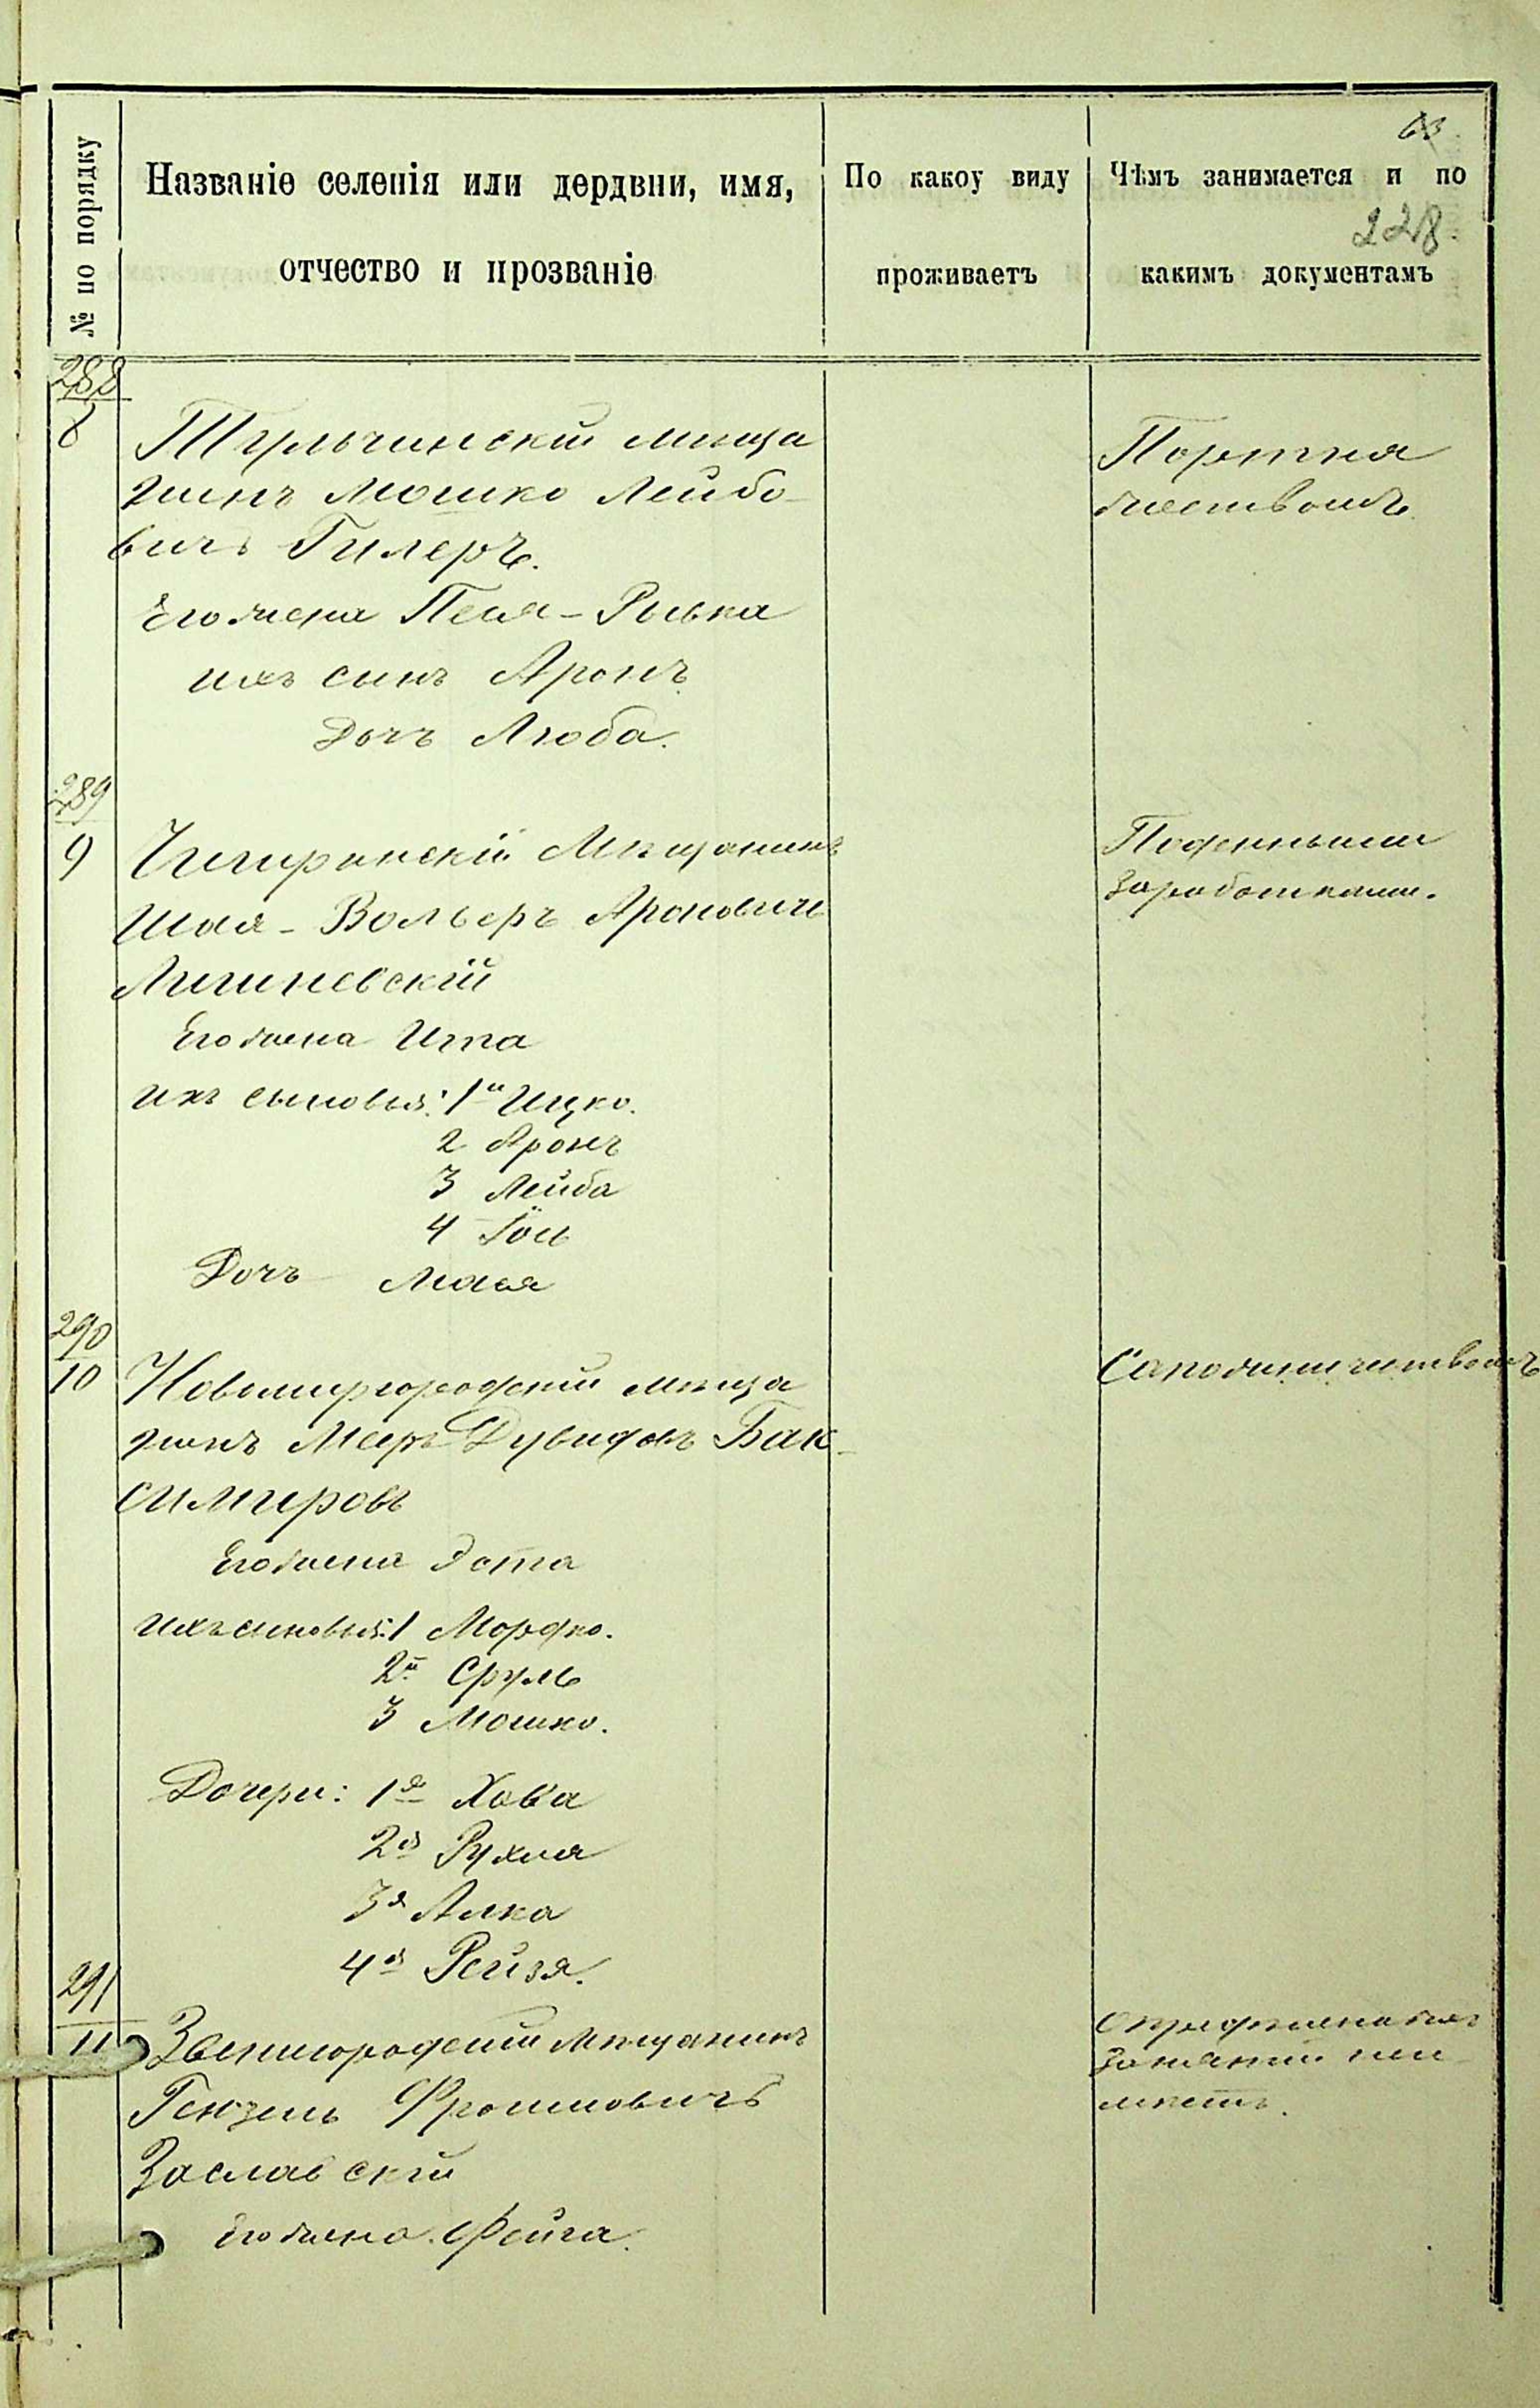 63
№ по порядку
Названіе селенія или дердвни, имя,
отчество и прозваніе
По какоу виду
проживаетъ
Чѣмъ занимается и по
228.
какимъ документамъ
288
8
Тульчинскій мѣща
нинъ Мошко Лейбо-
вичъ Гилеръ.
Его жена Песя-Рывка
ихъ сынъ Аронъ
Дочъ Люба.
Портня
жествомъ.
289
9
Чигиринскій Мѣщанинъ
Шая-Вольфъ Ароновичъ
Его жена Ита
ихъ сыновья: 1й Ицко.
2 Аронъ
3 Лейба
4 Іось
Дочъ Мася
Поденными
Заработками.
290
10
Новомиргородскій мѣща
нинъ Мееръ Дувидовъ Бак-
симировъ
Его жена Эста
Ихъ сыновья: 1 Мордко.
2й Сруль
3 Мошко.
Дочери: 1я Хова
2я Рухля
3я Алка
4я Рейзя.
Сапожничествомъ
291
11
Звенигородскій Мѣщанинъ
Фроимовичъ
Заславскій
Его жена Фейга.
Опредѣленныхъ
Занятій неи
мѣетъ.